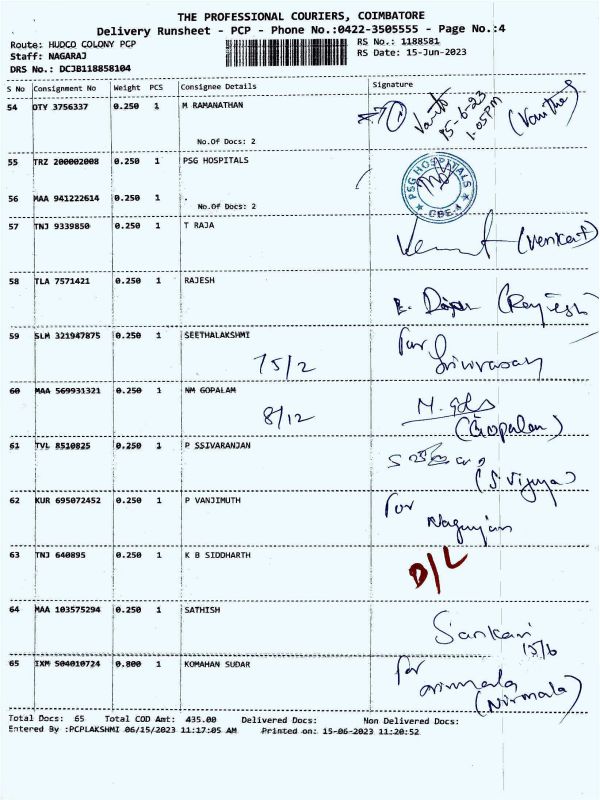 THE PROFESSIONAL COURIERS, COIMBATORE
Delivery Runsheet - PCP - Phone No.:0422-3505555 - Page No.:4
Route: HUDCO COLONY PCP RS No.: 1188581
Staff: NAGARAJ RS Date: 15-Jun-2023
DRS No.: DCJB118858104
S No Consignment No Weight PCS Consignee Details Signature
54 OTY 3756337 0.250 1 M RAMANATHAN 15-6-23 1.05PM (Vanitha)
No.Of Docs: 2
55 TRZ 200002008 0.250 1 PSG HOSPITALS PSG HOSPITALS CBE-4
56 MAA 941222614 0.250 1 .
No.Of Docs: 2
57 TNJ 9339850 0.250 1 T RAJA (Venkat)
58 TLA 7571421 0.250 1 RAJESH (Rajesh)
59 SLM 321947875 0.250 1 SEETHALAKSHMI for
75/2 Srinivasan
60 MAA 569931321 0.250 1 NM GOPALAM
8/12 (Gopalan)
61 TVL 8510825 0.250 1 P SSIVARANJAN
(S Vijaya)
62 KUR 695072452 0.250 1 P VANJIMUTH for
Nagarajan
63 TNJ 640895 0.250 1 K B SIDDHARTH D/L
64 MAA 103575294 0.250 1 SATHISH Sankari
15/6
65 IXM 504010724 0.800 1 KOMAHAN SUDAR for
nirmala
(Nirmala)
Total Docs: 65 Total COD Amt: 435.00 Delivered Docs: Non Delivered Docs:
Entered By :PCPLAKSHMI 06/15/2023 11:17:05 AM Printed on: 15-06-2023 11:20:52